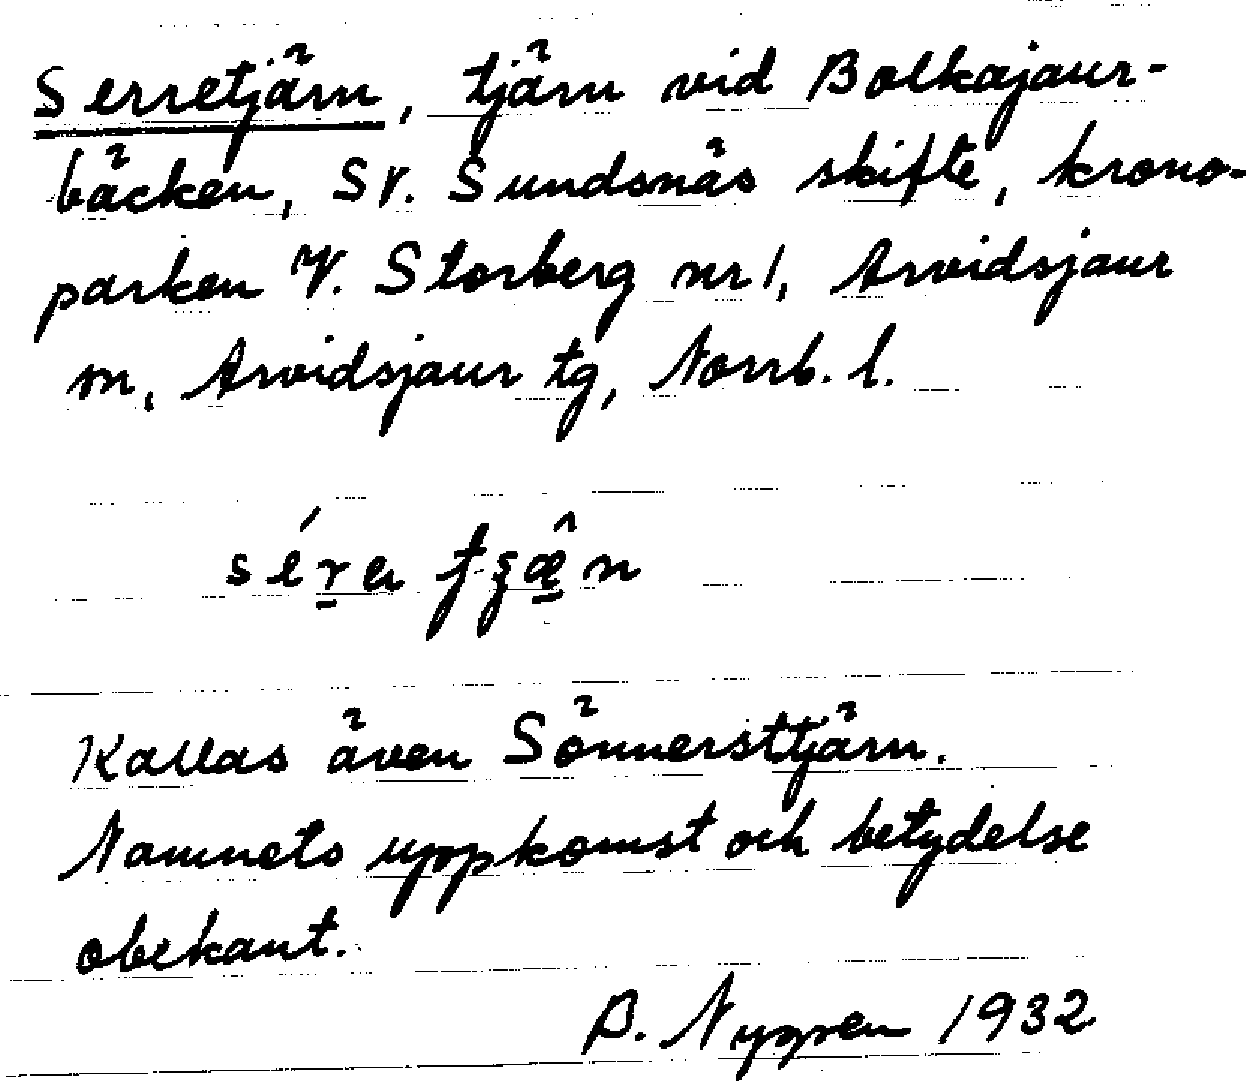 Serretjärn, tjärn vid Bolkajaur-
bäcken, Sv. Sundsnäs skifte, krono-
parken V. Storberg nr 1, Arvidsjaur
sn, Arvidsjaur tg, Norrb. l.
Kallas även Sönnersttjärn.
Namnets uppkomst och betydelse
obekant.
B. Nygren 1932